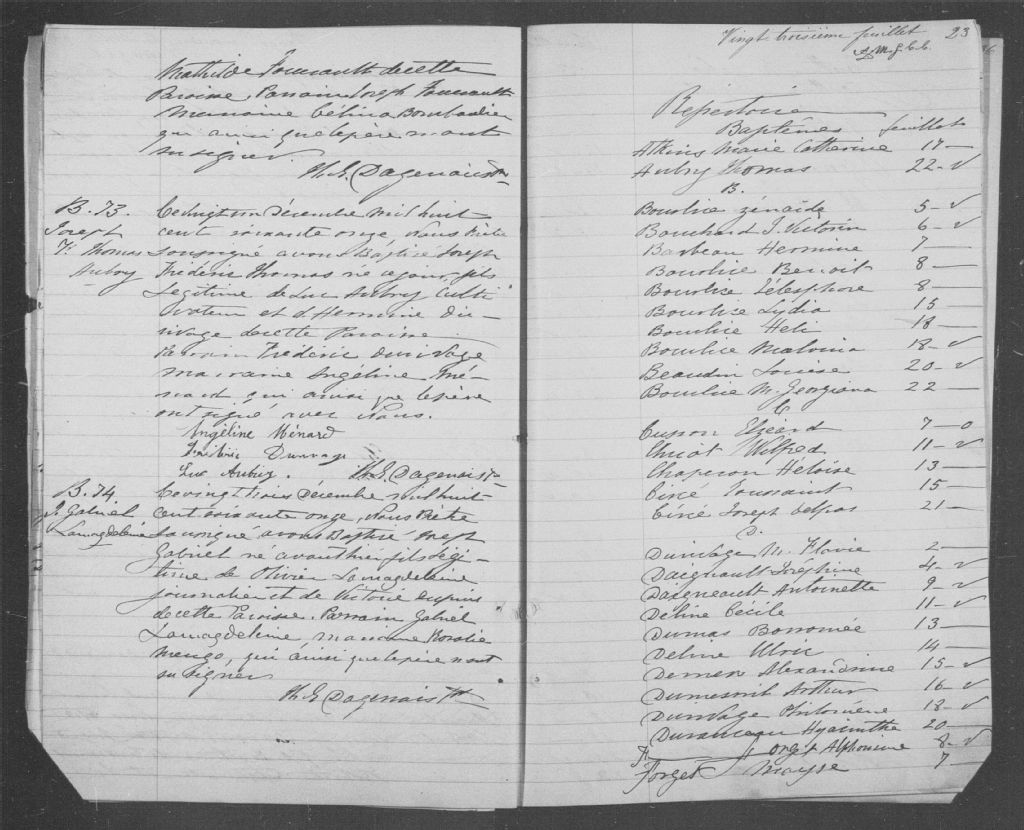 Mathilde Foucault de cette
Paroisse. Parrain Joseph Foucault
Marraine Célina Bombardier
qui ainsi que le père n'ont
su signer.
Th. G. Dagenais Ptre
B. 73.
Joseph
F. Thomas
Aubry
Ce vingt un Décembre mil huit
cent soixante onze, Nous Prêtre
soussigné avons Baptisé Joseph
Frédéric Thomas né ce jour, fils
Légitime de Luc Aubry Culti
vateur et d'Hermine Du-
rivage de cette Paroisse
Parrain Frédéric Durivage
marraine Angéline Mé-
nard qui ainsi que le père
ont signé avec Nous.
Angéline Ménard
Frédéric Durivage
Luc Aubry. Th. G. Dagenais Ptre
B. 74.
J. Gabriel
Lamagdeleine
Ce vingt trois Décembre mil huit
cent soixante onze, Nous Prêtre
soussigné avons Baptisé Joseph
Gabriel né avant hier fils légi-
time de Olivier Lamagdeleine
journalier et de Victoire Dupuis
de cette Paroisse. Parrain Gabriel
Lamagdeleine, marraine Rosalie
qui ainsi que le père n'ont
su signer
Th. G. Dagenais Ptre
Vingt troisième feuillet 23
Répertoire
Baptêmes feuillet
Atkins Marie Catherine 17 —
Aubry Thomas 22 - √
B.
Bourlice Zénaïde 5 - √
Bouchard J. Victorin 6 - √
Barbeau Hermine 7 —
Bourlice Benoit 8 —
Bourlice Télesphore 8 —
Bourlice Lydia 15
Bourlice Heli 18 —
Bourlice Malvina 18 - √
Beaudin Louise 20 - √
Bourlice M. Georgiana 22 —
C
Cusson Elzéard 7 - o
Chicot Wilfred 11 - √
Chaperon Héloïse 13 —
Ciré Toussaint 15 —
Ciré Joseph 21 —
D.
Durivage M. Flavie 2 —
Daignault Joséphine 4 - √
Daigneault Antoinette 9 - √
Deline Cécile 11 - √
Dumas Borromée 13 —
Deline Ulric 14 —
Demers Alexandrine 15 - √
Dumesnil Arthur 16 - √
Durivage Philomène 18 - √
Duranceau Hyacinthe 20 —
F. Forget Alphonsine 8 - √
Forget Mayse 7 —